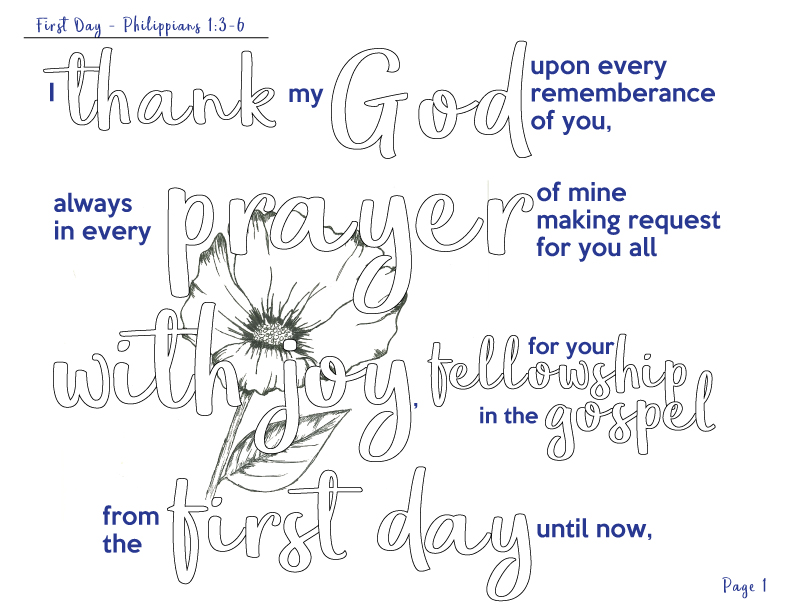 First Day - Philippians 1:3-6
I thank my God upon every
rememberance
of you,
always
in every prayer of mine
making request
for you all
with joy, for your fellowship
in the gospel
from
the first day until now,
Page 1